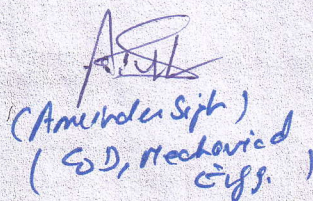 (Amrinder Singh)
( EOD, Mechanical
Engg. )